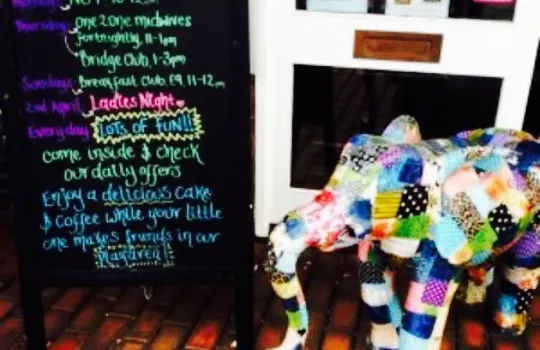 Thursday: one2one midwives
fortnightly, 11-1pm
Bridge Club, 1-3pm
Sundays: Breakfast Club £9, 11-12pm
2nd April, Ladies Night
Everyday LOTS OF FUN!!
come inside & check
our daily offers
Enjoy a delicious cake
& coffee while your little
one makes friends in our
playarea!